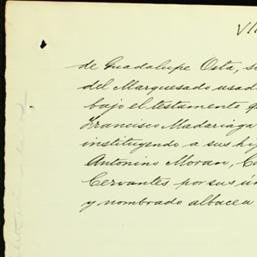 VI
de Guadalupe Osta, s
del Marquesado usad
bajo el testamento q
Francisco Madariaga
instituyendo a sus hij
Antonino Moran, C
Cervantes por sus ún
y nombrado albacea